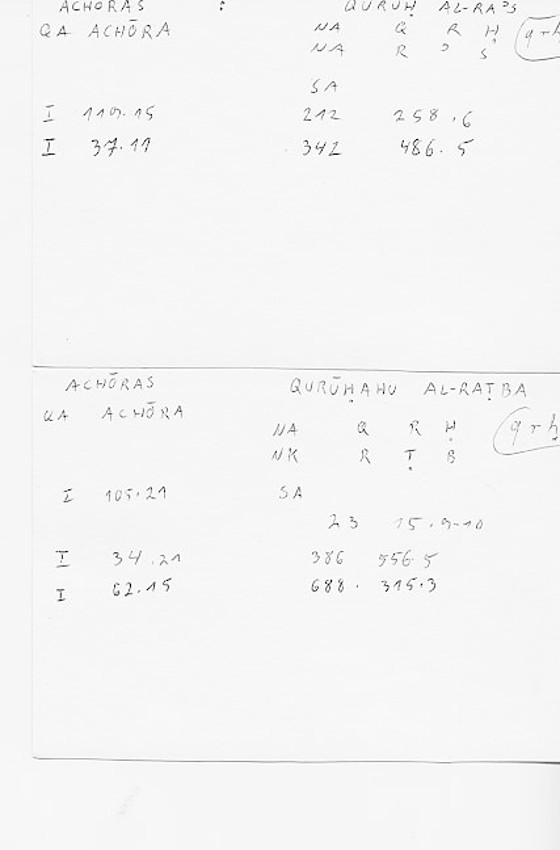 ACHŌRAS : QURUḤ AL-RAʾS
QA ACHŌRA NA Q R Ḥ qrḥ
NA R ʾ S
SA
I 119.15 212 258.6
I 37.11 342 486.5
ACHŌRAS QURŪḤAHU AL-RAṬBA
QA ACHŌRA
NA Q R Ḥ qrḥ
NK R Ṭ B
I 105.21 SA
23 15.9-10
I 34.21 386 556.5
I 62.15 688. 315.3